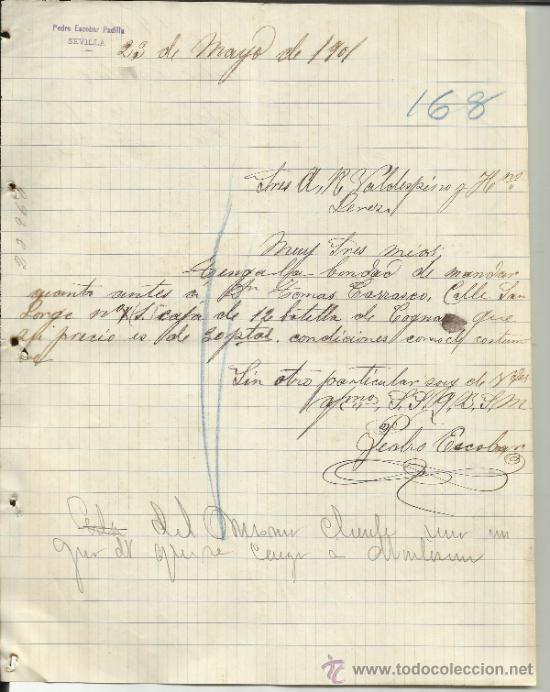 Pedro Escobar Padilla
SEVILLA
de Mayo de 1901
168
Sres A, R, Valdespino y Hno
Jerez
Muy Sres mios;
Tenga la bondad de mandar
cuanto antes a Dn Tomas Carrasco, Calle San
Jorge nº caja de 12 botella de Cognac que
su precio es de 30 ptas. condiciones como de costum
bre
Sin otro particular soy de Vdes
afmo, S, S, Q, B, S, M
Pedro Escobar
del mismo cliente
que
TODOCOLECCION
www.todocoleccion.net